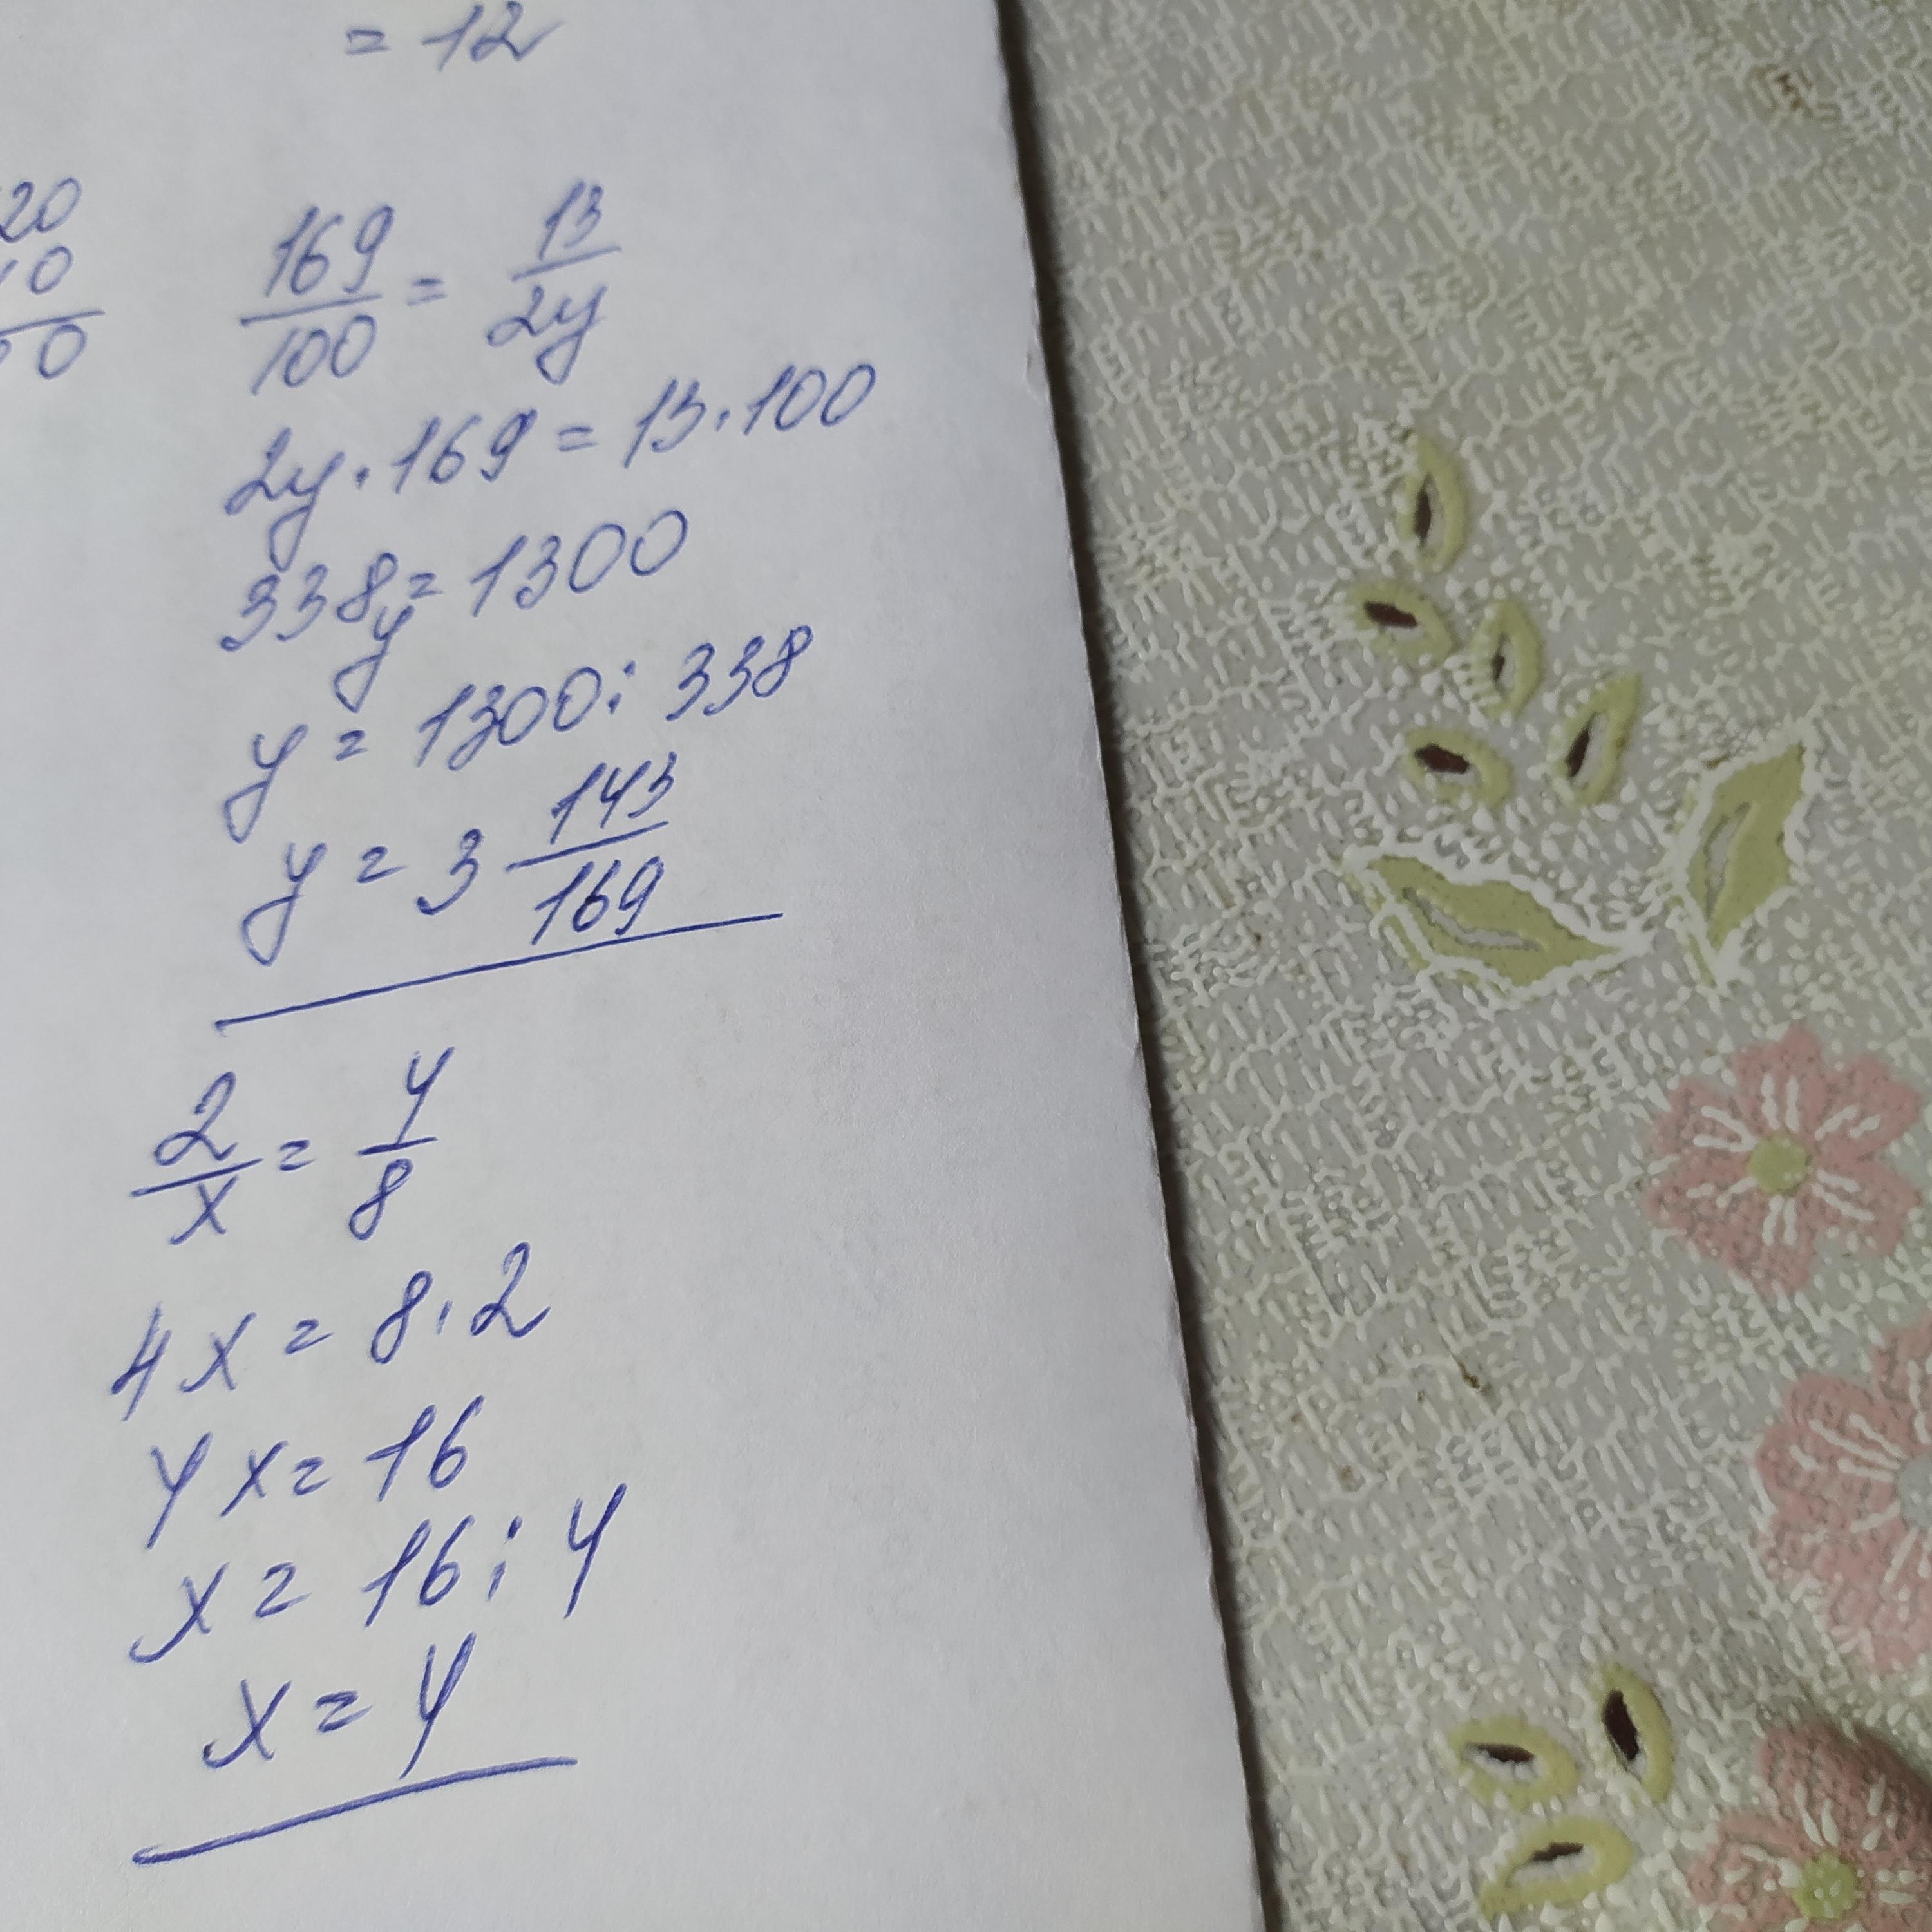 = 12
20
169/100 = 13/2y
10
0
2y · 169 = 13 · 100
338y = 1300
y = 1300 : 338
y = 3 143/169
2/x = 4/8
4x = 8 · 2
4x = 16
x = 16 : 4
x = 4